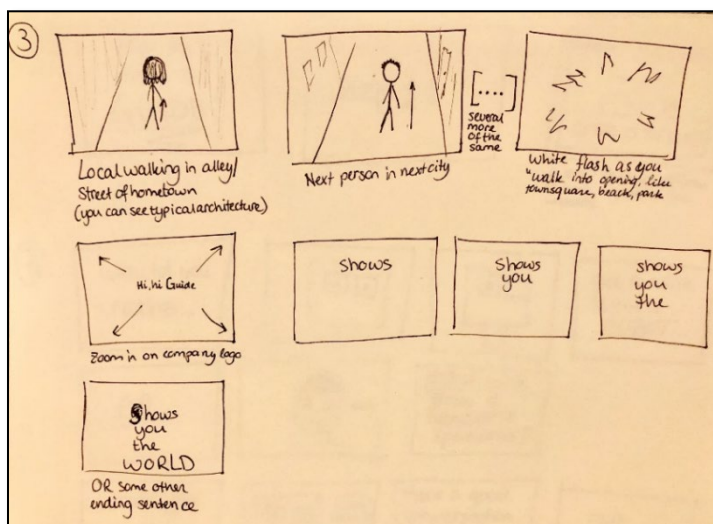 3
Local walking in alley/
Street of hometown
(you can see typical architecture)
Next person in next city
[....]
several
more
of the
same
white flash as you
"walk into opening, like
townsquare, beach, park
Hi, hi Guide
Zoom in on company logo
shows
Shows
you
shows
you
the
Shows
you
the
WORLD
OR some other
ending sentence